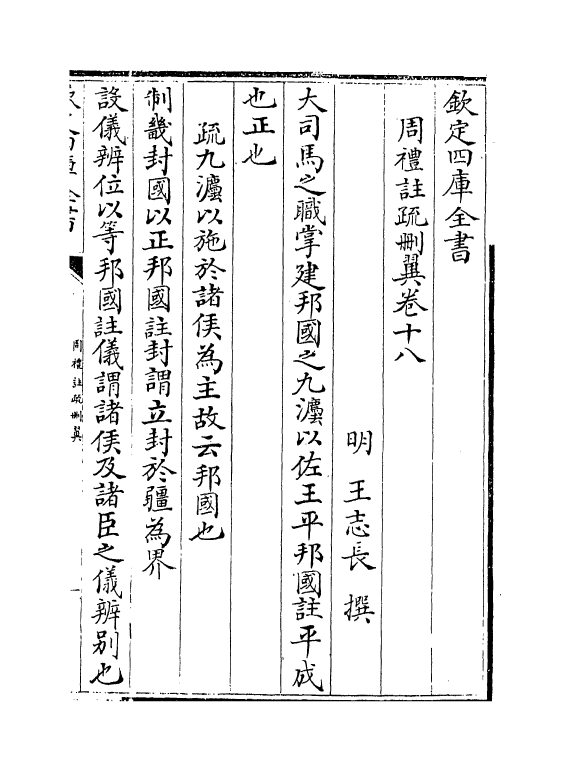 欽定四庫全書
周禮註疏刪翼卷十八
明 王志長 撰
大司馬之職掌建邦國之九灋以佐王平邦國註平成
也正也
疏九灋以施於諸侯為主故云邦國也
制畿封國以正邦國註封謂立封於疆為界
設儀辨位以等邦國註儀謂諸侯及諸臣之儀辨别也
周禮註疏刪翼